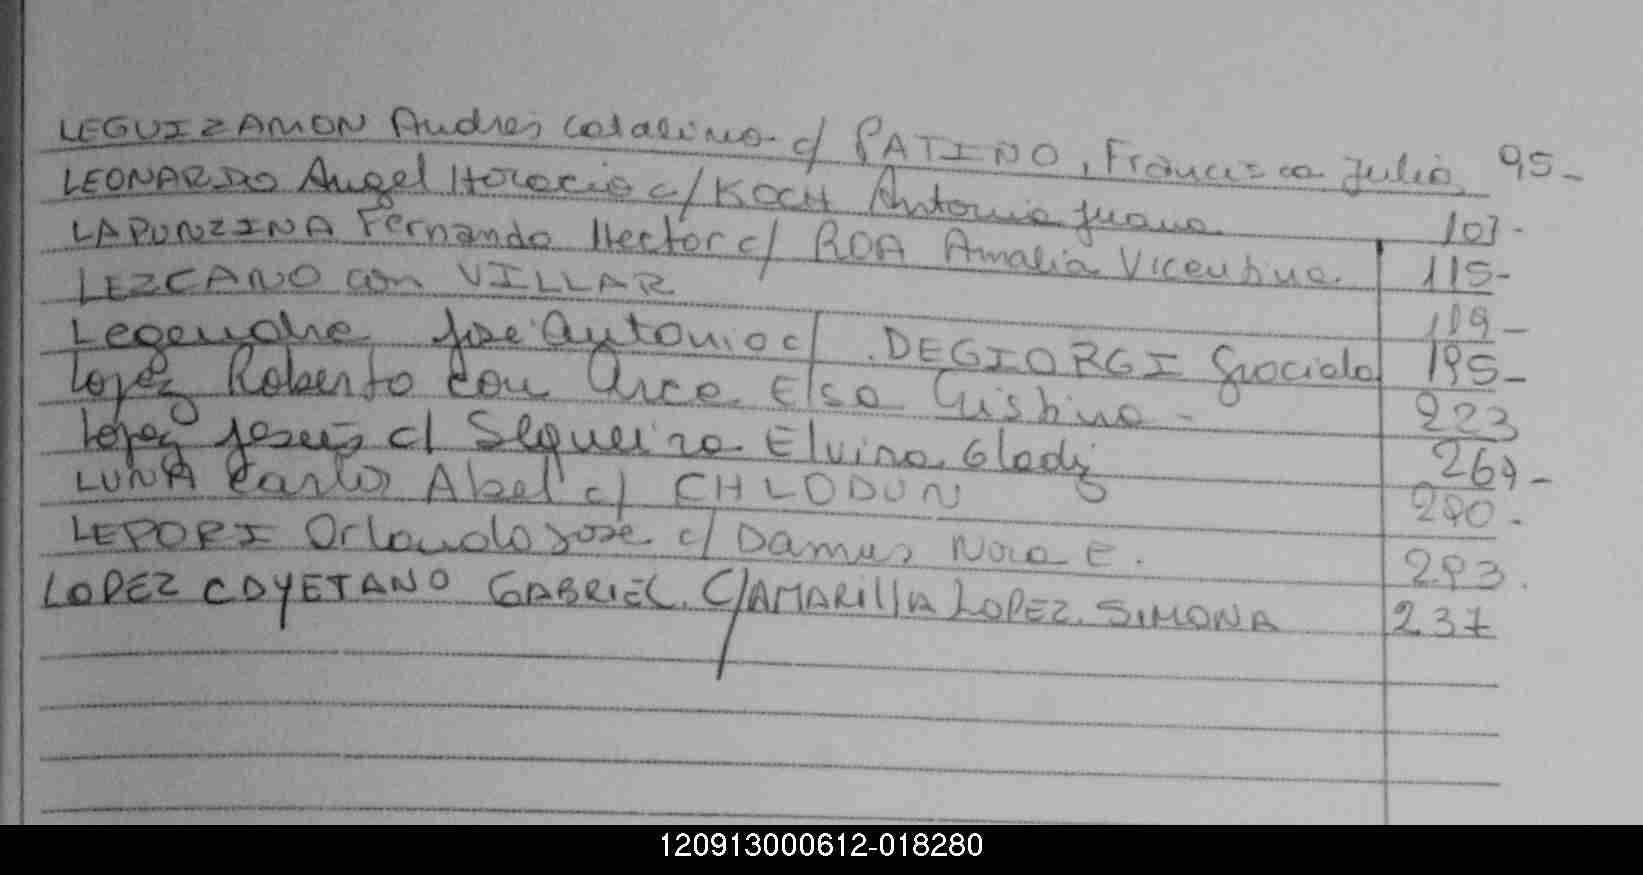 LEGUIZAMON Andres Catalino c/ PATINO, Francisca Julia 95-
LEONARDO Angel Horacio c/ KOCH Antonia Juana 107-
LAPUNZINA Fernando Hector c/ ROA Amalia Vicentina 115-
LEZCANO con VILLAR 119-
Legendre Jose Antonio c/ DEGIORGI Graciela 195-
Lopez Roberto con Arce Elsa Cristina - 223
Lopez Jesus c/ Sequeira Elvira Gladis 269-
LUNA Carlos Abel c/ CHLODUN 290.
LEPORI Orlando Jose c/ Damus Nora E. 293.
LOPEZ COYETANO GABRIEL. C/ AMARILLA LOPEZ. SIMONA 237
120913000612-018280